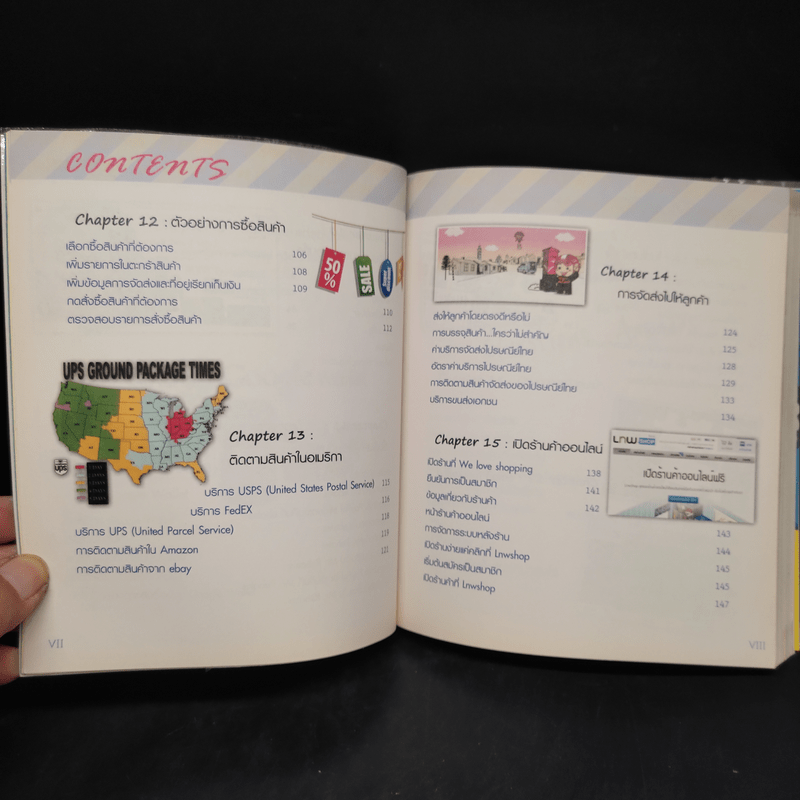 CONTENTS
Chapter 12 : ตัวอย่างการซื้อสินค้า
เลือกซื้อสินค้าที่ต้องการ 106
เพิ่มรายการในตะกร้าสินค้า 108
เพิ่มข้อมูลการจัดส่งและที่อยู่เรียกเก็บเงิน 109
กดสั่งซื้อสินค้าที่ต้องการ 110
ตรวจสอบรายการสั่งซื้อสินค้า 112
50%
SALE
UPS GROUND PACKAGE TIMES
ups
Chapter 13 :
ติดตามสินค้าในอเมริกา
บริการ USPS (United States Postal Service) 115
บริการ FedEX 116
บริการ UPS (United Parcel Service) 118
การติดตามสินค้าใน Amazon 119
การติดตามสินค้าจาก ebay 121
VII
Chapter 14 :
การจัดส่งไปให้ลูกค้า
ส่งให้ลูกค้าโดยตรงดีหรือไม่ 124
การบรรจุสินค้า...ใครว่าไม่สำคัญ 125
ค่าบริการจัดส่งไปรษณีย์ไทย 128
อัตราค่าบริการไปรษณีย์ไทย 129
การติดตามสินค้าจัดส่งของไปรษณีย์ไทย 133
บริการขนส่งเอกชน 134
Chapter 15 : เปิดร้านค้าออนไลน์
เปิดร้านที่ We love shopping 138
ยืนยันการเป็นสมาชิก 141
ข้อมูลเกี่ยวกับร้านค้า 142
หน้าร้านค้าออนไลน์ 143
การจัดการระบบหลังร้าน 144
เปิดร้านง่ายแค่คลิกที่ Lnwshop 145
เริ่มต้นสมัครเป็นสมาชิก 145
เปิดร้านค้าที่ Lnwshop 147
LnW SHOP
เปิดร้านค้าออนไลน์ฟรี
VIII